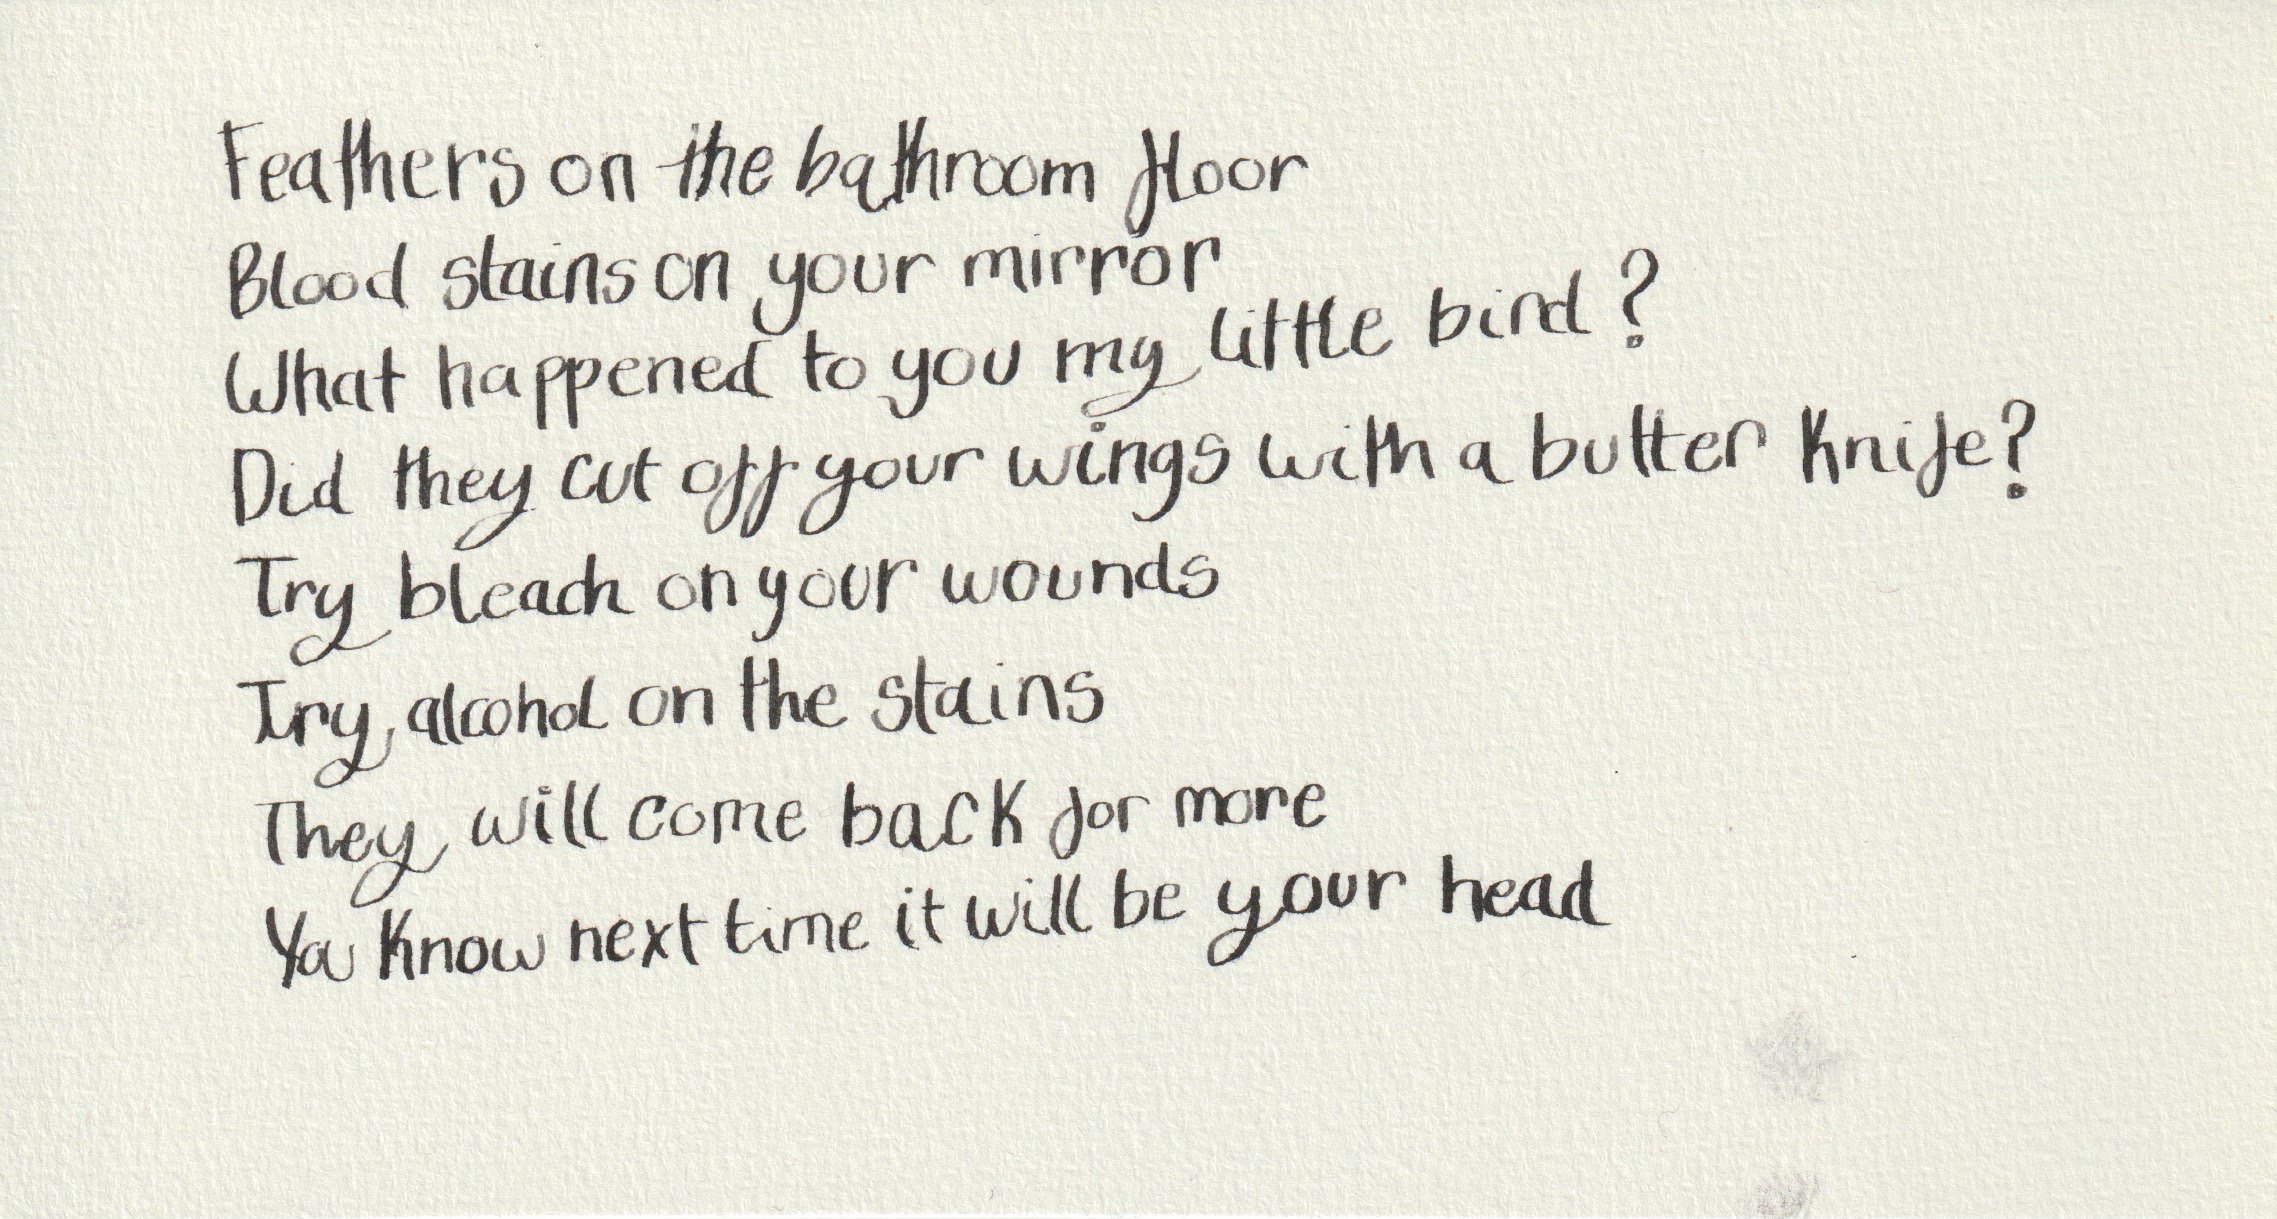 Feathers on the bathroom floor
Blood stains on your mirror
What happened to you my little bird?
Did they cut off your wings with a butter knife?
Try bleach on your wounds
Try alcohol on the stains
They will come back for more
You know next time it will be your head